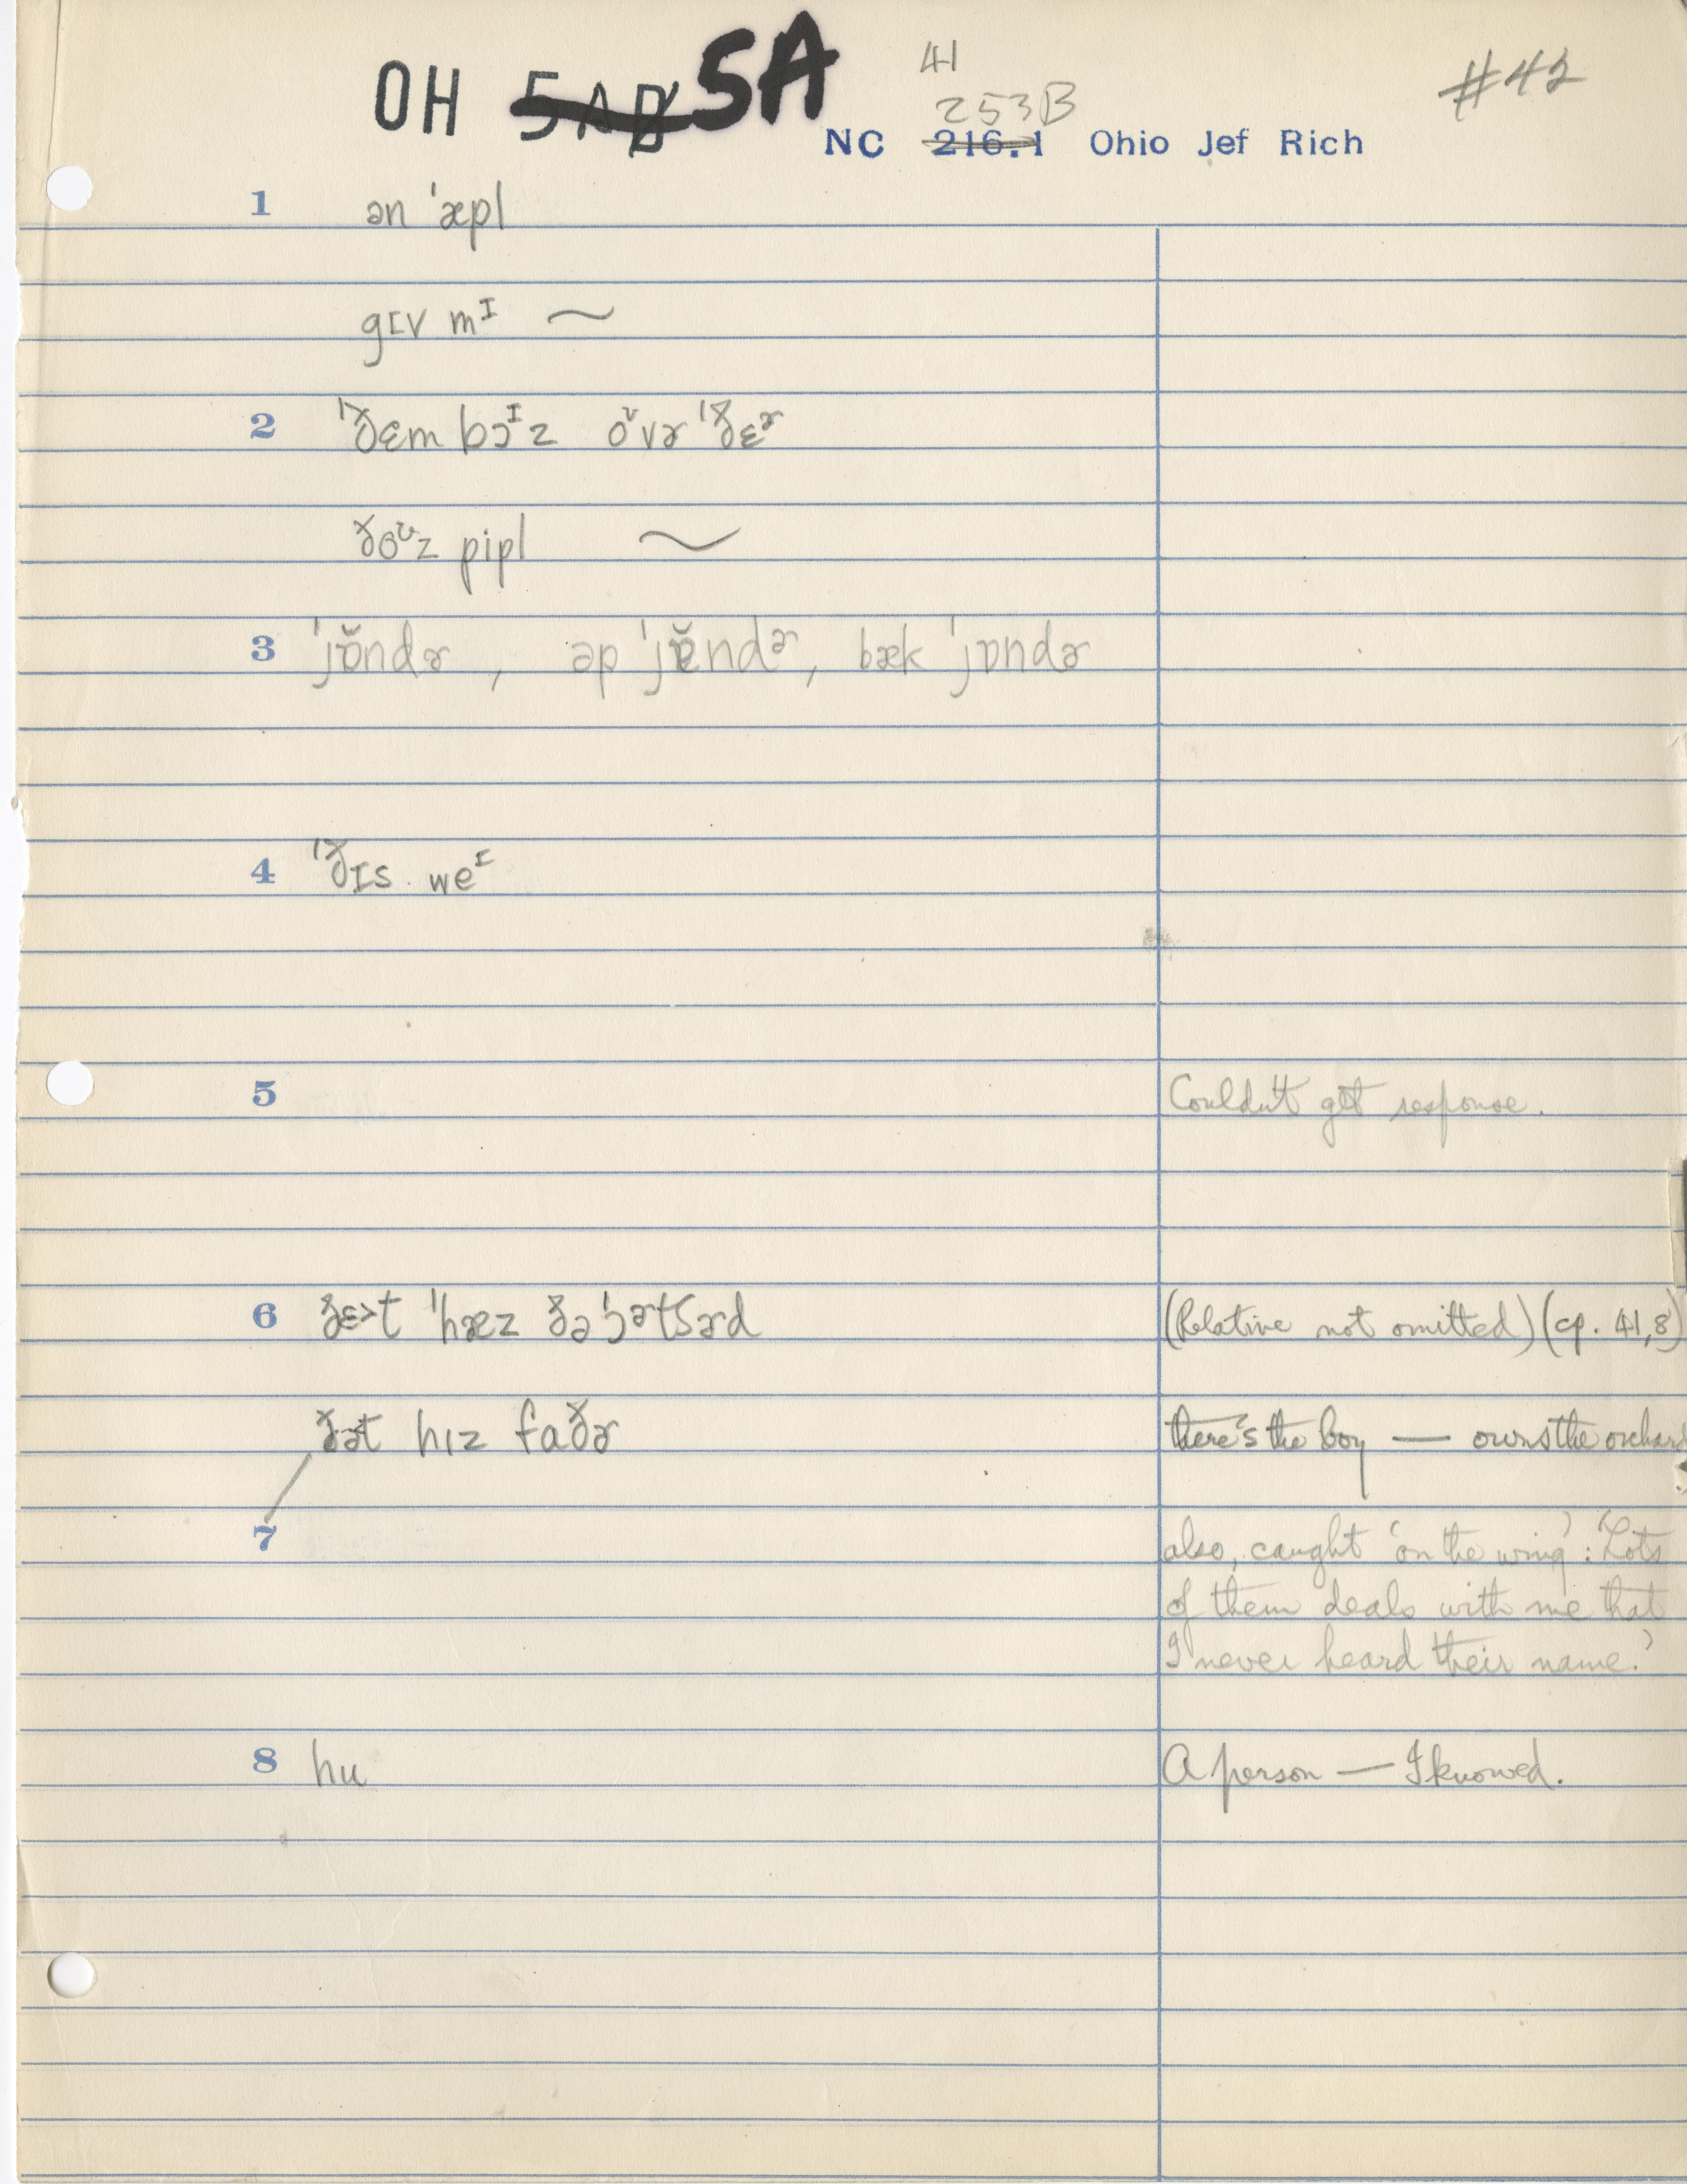 OH 5AB 5A 41 #42
253B
NC 216.1 Ohio Jef Rich
1 ən ˈæpl
gɪv mᴵ ~
2 ˈðɛm bɔᴵz oˇvɚ ˈðɛᵊ˞
ðoᶷz pipl ~
3 ˈjɒ̆ndɚ, əp ˈjɒ̆ndɚ, bæk ˈjɒndɚ
4 ˈðɪs weᴵ
5 Couldn't get response.
6 ðɛ>t ˈhæz ðə ˈɔɚtʃɚd (Relative not omitted) (cp. 41,8)
ðət hɪz faðɚ there's the boy — owns the orchard
7 also, caught 'on the wing': 'Lots
of them deals with me that
I never heard their name.'
8 hu A person — I knowed.